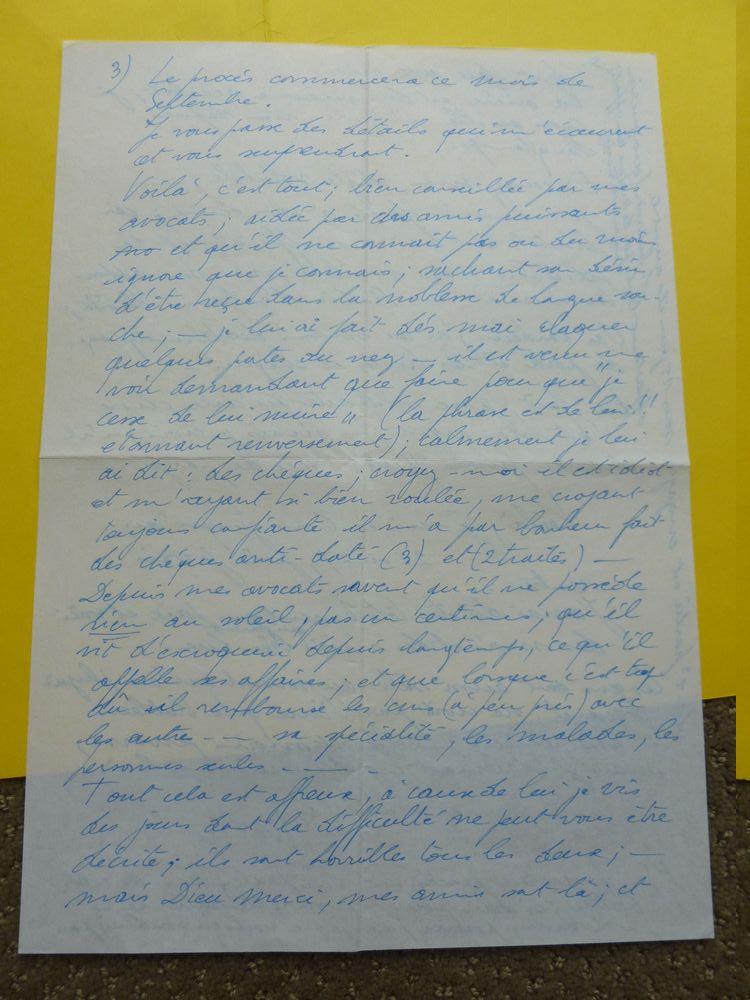 3) Le procès commencera ce mois de
Septembre.
Je vous passe des détails qui m'écœurent
et vous surprendront.
Voilà, c'est tout; bien conseillée par mes
avocats; aidée par des amis puissants
et qu'il ne connait pas ou du moins
ignore que je connais; sachant son désir
d'être reçu dans la noblesse de longue
; — je lui ai fait dès mai claquer
quelques portes au nez — il est venu me
voir demandant que faire pour que "je
cesse de lui nuire" (la phrase est de lui!!
étonnant renversement); calmement je lui
ai dit: des chèques; croyez-moi il est idiot
et m'ayant si bien roulée, me croyant
toujours confiante il m'a par bonheur fait
des chèques anti-daté (3) et (2 traités) —
Depuis mes avocats savent qu'il ne possède
rien au soleil, pas un centimes; qu'il
vit d'escroquerie depuis longtemps, ce qu'il
appelle ses affaires; et que lorsque c'est trop
dû il rembourse les uns (à peu près) avec
les autres — — sa spécialité, les malades, les
personnes seules — — .
Tout cela est affreux, à cause de lui je vis
des jours dont la difficulté ne peut vous être
décrite; ils sont horribles tous les deux; —
mais Dieu merci, mes amis sont là; et